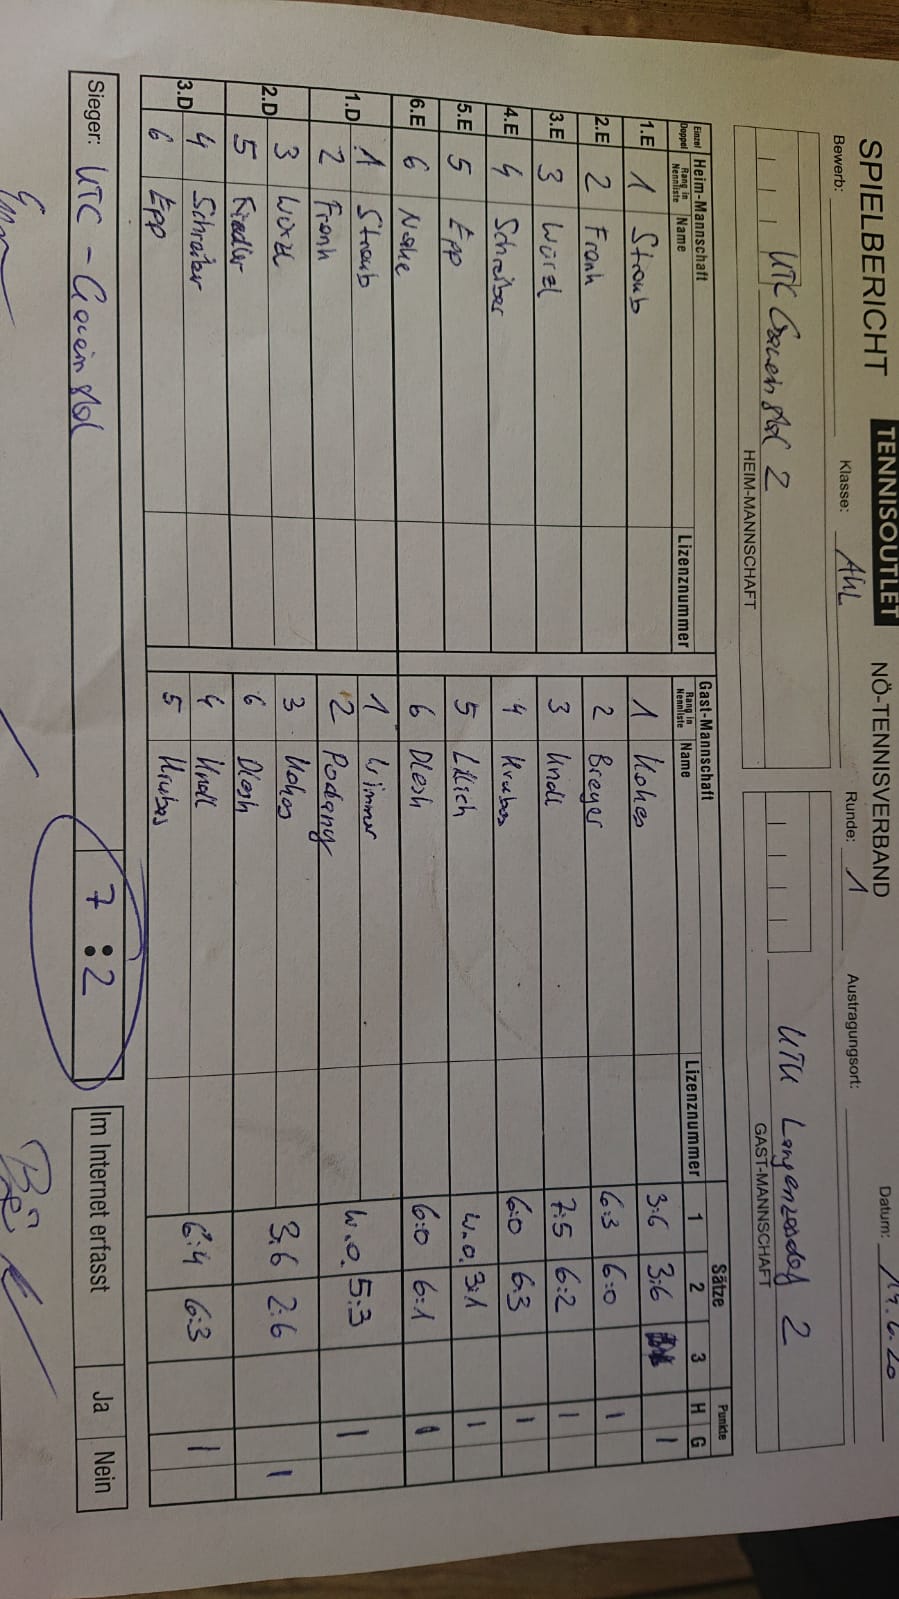 SPIELBERICHT TENNISOUTLET NÖ-TENNISVERBAND
Bewerb: Klasse: AKL Runde: 1 Austragungsort: Datum:
UTC Gaweinstal 2 UTK Langenzersdorf 2
HEIM-MANNSCHAFT GAST-MANNSCHAFT
Einzel Doppel Heim-Mannschaft Gast-Mannschaft Sätze Punkte
Rang in Nennliste Name Lizenznummer Rang in Nennliste Name Lizenznummer 1 2 3 H G
1.E 1 Straub 1 Kohes 3:6 3:6 1
2.E 2 Frank 2 Breyer 6:3 6:0 1
3.E 3 Würzl 3 Knoll 7:5 6:2 1
4.E 4 Schreiber 4 Krubes 6:0 6:3 1
5.E 5 Epp 5 w.o. 3:1 1
6.E 6 6 6:0 6:1 1
1.D 1 Straub 1 Wimmer
2 Frank 2 Podany w.o. 5:3 1
2.D 3 Würzl 3 Kohes
5 Fiedler 6 3:6 2:6 1
3.D 4 Schreiber 4 Knoll
6 Epp 5 Krubes 6:4 6:3 1
Sieger: UTC - Gaweinstal 7 : 2 Im Internet erfasst Ja Nein